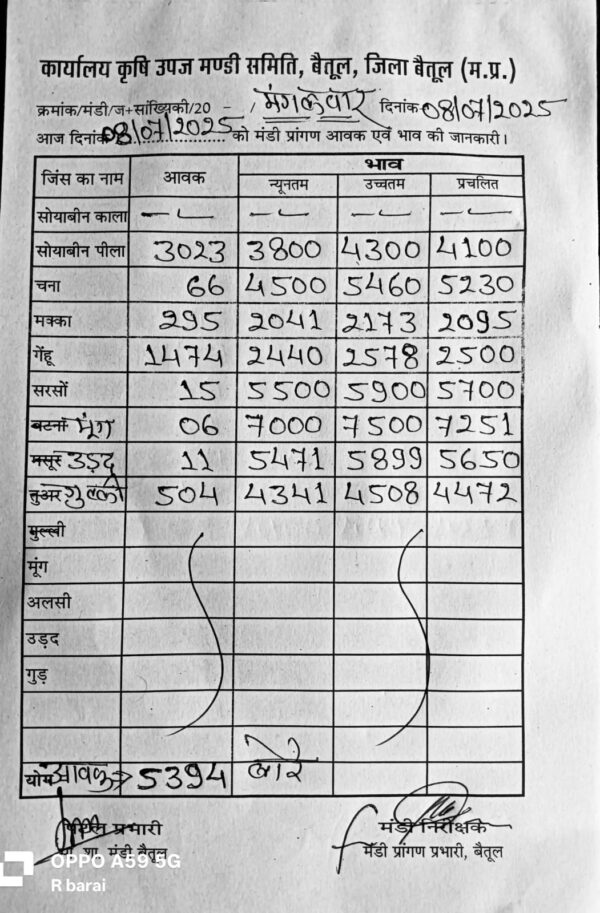 कार्यालय कृषि उपज मण्डी समिति, बैतूल, जिला बैतूल (म.प्र.)
क्रमांक/मंडी/ज+सांख्यिकी/20 - / मंगलवार दिनांक 08/07/2025
आज दिनांक 08/07/2025 को मंडी प्रांगण आवक एवं भाव की जानकारी।
जिंस का नाम आवक भाव
न्यूनतम उच्चतम प्रचलित
सोयाबीन काला -- -- -- --
सोयाबीन पीला 3023 3800 4300 4100
चना 66 4500 5460 5230
मक्का 295 2041 2173 2095
गेंहू 1474 2440 2578 2500
सरसों 15 5500 5900 5700
बटना मूंग 06 7000 7500 7251
मसूर उड़द 11 5471 5899 5650
तुअर गुल्ली 504 4341 4508 4472
मुल्ली
मूंग
अलसी
उड़द
गुड़
योग आवक → 5394 बोरे
प्रभारी मंडी निरीक्षक
शा. मंडी बैतूल मंडी प्रांगण प्रभारी, बैतूल
OPPO A59 5G
R barai